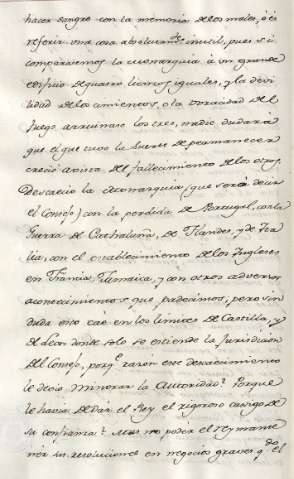 hacer sangre con la memoria de los males, o es
referir una cosa absolutam.te inutil, pues si
comparasemos la monarquia à un grande
edificio de quatro lienzos iguales, y la devi
lidad de los cimientos, o la voracidad del
fuego arruinase los tres, nadie dudarà
que el que tuvo la suerte de permanecer
creciò acosta del fallecimiento de los otros.
Descaecio la Monarquia (que serà decir
el Consejo) con la perdida de Portugal, con la
Guerra de Cathaluña, de Flandes, y de Ita
lia, con el establecimiento de los Ingleses
en Francia, Jamaica, y con otros adversos
acontecimientos que padecimos, pero sin
duda esto caè en los limites de Castilla, y
de Leon donde solo se estiende la Jurisdicion
del Consejo, porq.e razon este descaecimiento
le devia minorar la Autoridad? Porque
le havia de dar el Rey el rigoroso castigo de
su confianza? Mas no poder el Rey mante
ner sus resoluciones en negocios graves q.do el